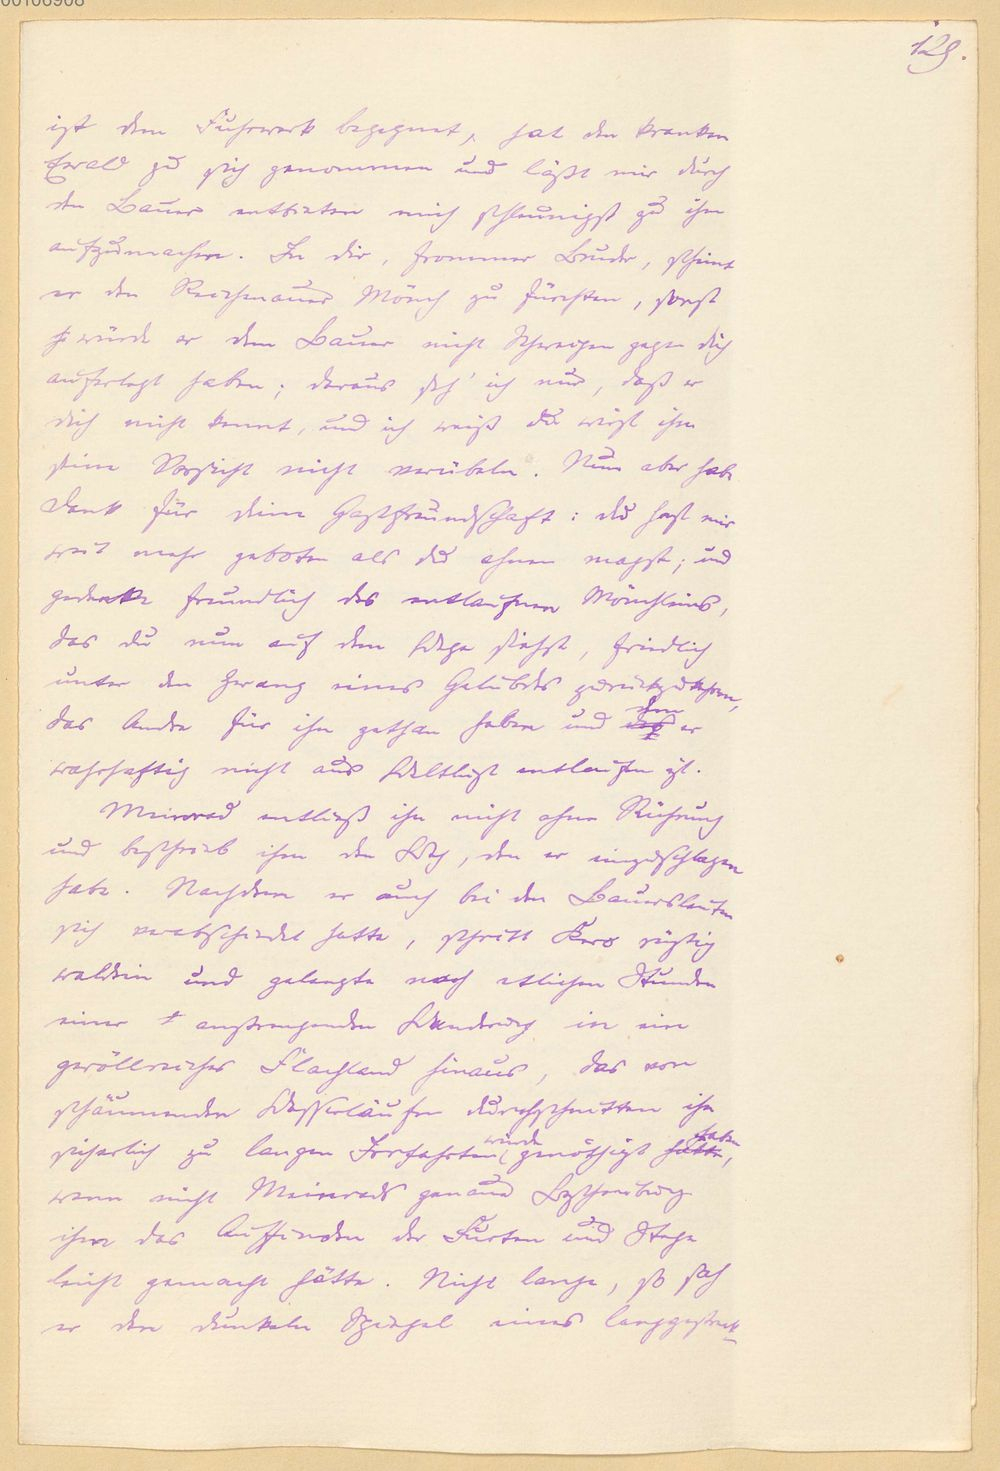 00106908
129.
ist dem Fuhrwerk begegnet, hat den kranken
Ewald zu sich genommen und läßt mir durch
den Bauer entbieten mich schleunigst zu ihm
aufzumachen. In dir, frommer Bruder, scheint
er den Reichenauer Mönch zu fürchten, sonst
würde er dem Bauer nicht Schweigen gegen dich
auferlegt haben; daraus seh' ich nur, daß er
dich nicht kennt, und ich weiß du wirst ihm
seine Vorsicht nicht verübeln. Nun aber habe
Dank für deine Gastfreundschaft: du hast mir
weit mehr geboten als du ahnen magst; und
gedenke freundlich des entlaufnen Mönchleins,
das du nun auf dem Wege siehst, friedlich
unter den Zwang eines Gelübdes zurückzukehren,
das Andre für ihn gethan haben und dem er
wahrhaftig nicht aus Weltlust entlaufen ist.
Meinrad entließ ihn nicht ohne Rührung
und beschrieb ihm den Weg, den er einzuschlagen
habe. Nachdem er auch bei den Bauersleuten
sich verabschiedet hatte, schritt Kero rüstig
waldein und gelangte nach etlichen Stunden
einer anstrengenden Wanderung in ein
geröllreiches Flachland hinaus, das von
schäumenden Wasserläufen durchschnitten ihn
sicherlich zu langen Irrfahrten würde genöthigt haben,
wenn nicht Meinrads genaue Beschreibung
ihm das Auffinden der Furten und Stege
leicht gemacht hätte. Nicht lange, so sah
er den dunkeln Spiegel eines langgestreck-